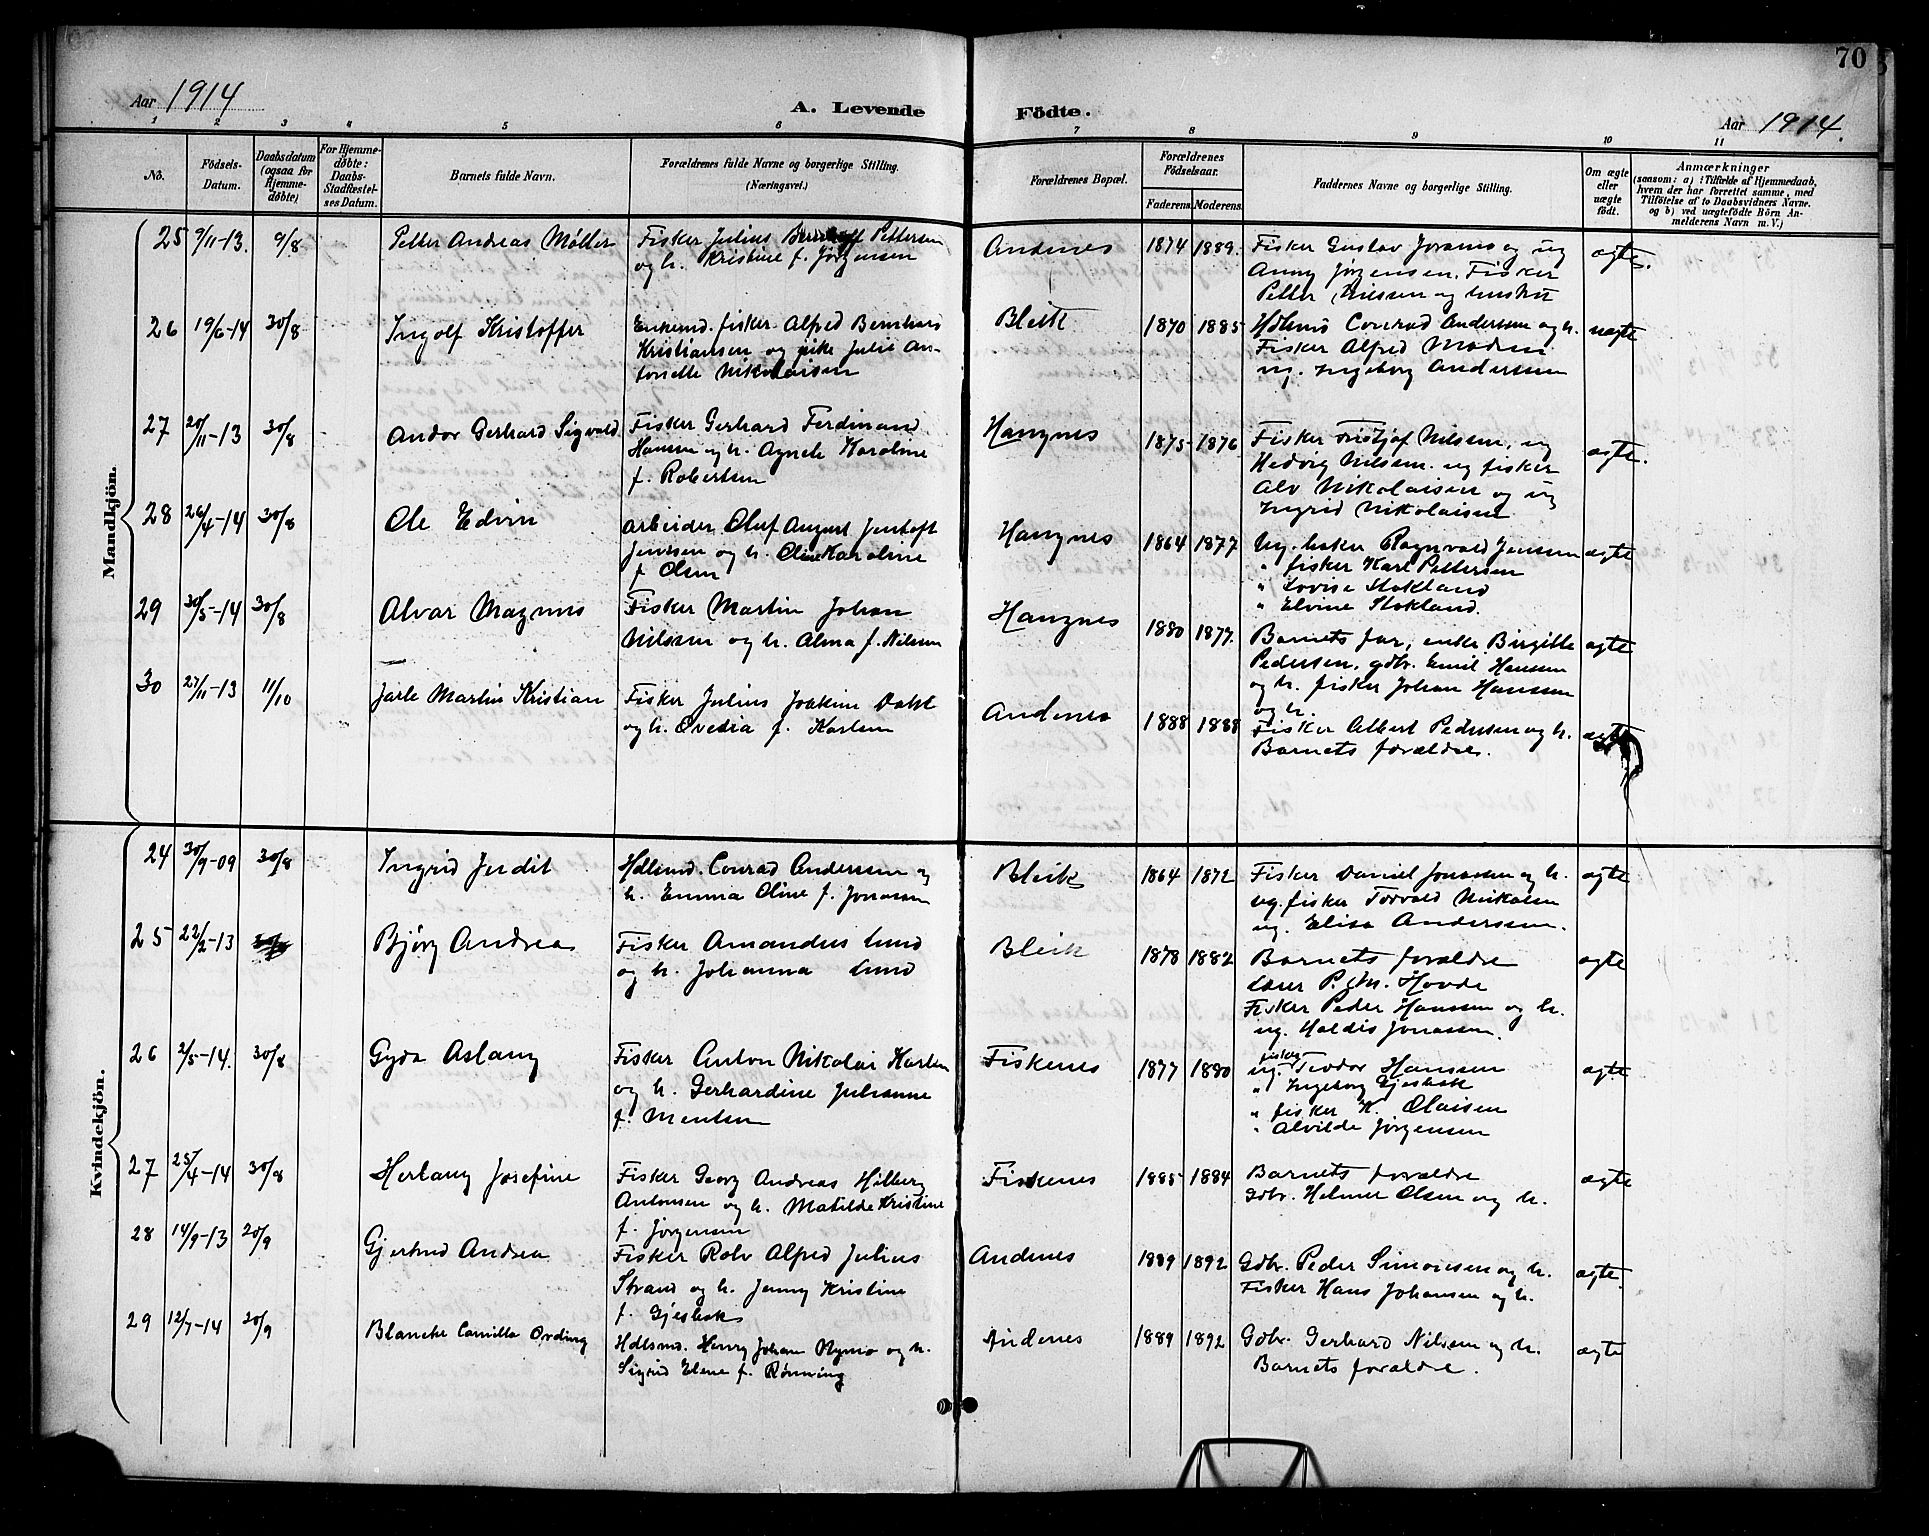 70
Aar 1914
A. Levende
Födte.
Aar 1914.
1 2 3 4 5 6 7 8 9 10 11
No.
Födsels-
Datum.
Daabsdatum
(ogsaa for
Hjemme-
döbte)
For Hjemme-
döbte:
Daabs-
Stadfæstel-
ses Datum.
Barnets fulde Navn.
Forældrenes fulde Navne og borgerlige Stilling.
(Næringsvei.)
Forældrenes Bopæl.
Forældrenes
Födselsaar.
Faderens. Moderens.
Faddernes Navne og borgerlige Stilling.
Om ægte
eller
uægte
födt.
Anmærkninger
(saasom: a) i Tilfælde af Hjemmedaab,
hvem der har forrettet samme, med
Tilföielse af to Daabsvidners Navne.
og b) ved uægtefödte Börn An-
melderens Navn m. V.)
Mandkjön.
25 9/11-13. 9/8 Petter Andreas Møller
Fisker Julius Pettersen
og h. Kristine f. Jørgensen
Andenes 1874 1889.
Fisker Gustav og ug
Anny Jørgensen. Fisker
Petter Nilsen og hustru
ægte.
26 19/6-14 30/8 Ingolf Kristoffer
Enkemd. fisker Alfred Bernhard
Kristiansen og pike Julie An-
tonette Nikolaisen
Bleik 1870 1885
Hdlsmd Conrad Andersen og h.
Fisker Alfred Madsen
ug. Ingeborg Andersen
uægte
27 20/11-13 30/8 Andor Gerhard Sigvald
Fisker Gerhard Ferdinand
Hansen og h. Agnete Karoline
f. Robertsen
Haugnes 1875 1876
Fisker Fridtjof Nilsen, ug
Hedvig Nilsen. ug fisker
Alv Nikolaisen og ug
Ingrid Nikolaisen
ægte.
28 26/4-14 30/8 Ole Edvin
arbeider Oluf August Jentoft
Jenssen og h. Oline Karoline
f. Olsen
Haugnes 1864 1877
Ug. Ragnvald Jenssen
" fisker Karl Pettersen
" Lovise Stokland
" Elvine Stokland.
ægte
29 30/5-14 30/8 Alvar Magnus
Fisker Martin Johan
Nilssen og h. Alma f. Nilsen
Haugnes 1880 1877.
Barnets far, enke Birgitte
Pedersen, gdbr. Emil Hanssen
og h. fisker Johan Hanssen
og h.
ægte
30 27/11-13 11/10 Jarle Martin Kristian
Fisker Julius Joakim Dahl
og h. Ovedia f. Karlsen
Andenes 1888 1888
Fisker Albert Pedersen og h.
Barnets forældre.
ægte
Kvindekjön.
24 30/9-09 30/8 Ingrid Judit
Hdlsmd. Conrad Andersen og
h. Emma Oline f. Jonassen
Bleik 1864 1872
Fisker Daniel Jonassen og h.
ug. fisker Torvald Nikolaisen
ug. Elisa Anderssen.
ægte
25 22/2-13 Bjørg Andrea
Fisker Amandus Lund
og h. Johanna Lund
Bleik 1878 1882
Barnets forældre
lærer P. M. Hovde
Fisker Peder Hanssen og h.
ug. Haldis Jonassen.
ægte
26 2/5-14. 30/8 Gyda Aslaug
Fisker Anton Nikolai Karlsen
og h. Gerhardine Julianne
f. Mentsen
Fiskenes 1877 1880
ug. fisker Teodor Hanssen
" Ingeborg Gjesbak
" fisker K. Olaisen
" Alvilde Jørgensen
ægte
27 25/4-14 30/8 Herlaug Josefine
Fisker Georg Andreas Hilberg
Antonsen og h. Matilde Kristine
f. Jørgensen
Fiskenes 1885 1884
Barnets forældre
Gdbr. Helmer Olsen og h.
ægte
28 14/9-13 20/9 Gjertrud Andrea
Fisker Rolv Alfred Julius
Strand og h. Jenny Kristine
f. Gjesbak
Andenes 1889 1892
Gdbr. Peder Simonsen og h.
Fisker Hans Johansen og h.
ægte.
29 12/7-14 20/9 Blanche Camilla Ording
Hdlsmd. Henry Johan Nymo og h.
Sigrid Elene f. Rønning
Andenes 1889 1892
Gdbr. Gerhard Nilsen og h.
Barnets forældre.
ægte